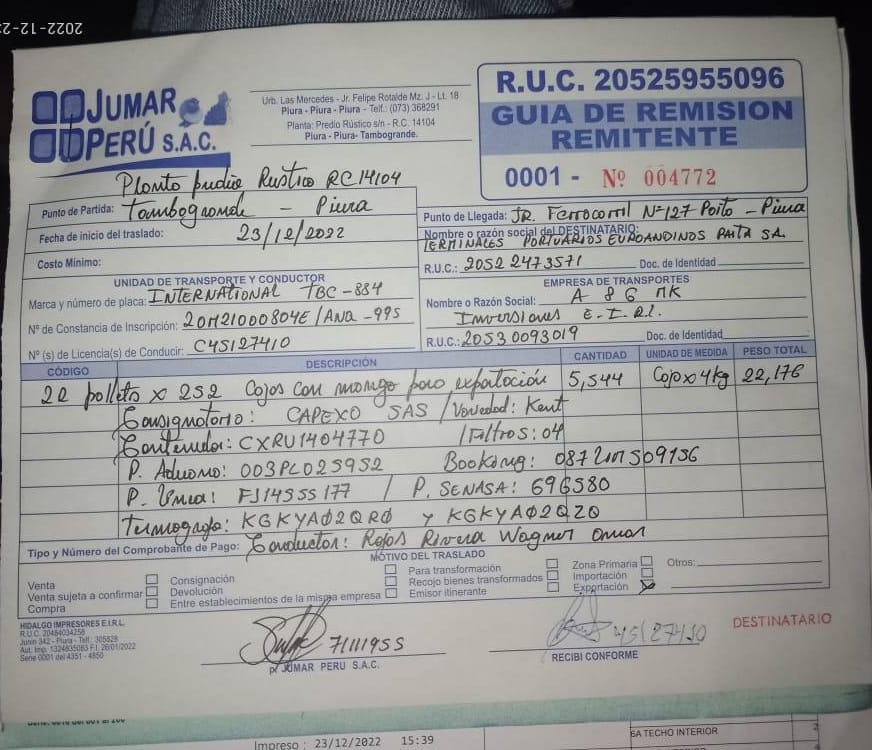 2022-12-23
JUMAR
PERÚ S.A.C.
Urb. Las Mercedes - Jr. Felipe Rotalde Mz. J - Lt. 18
Piura - Piura - Piura - Telf.: (073) 368291
Planta: Predio Rústico s/n - R.C. 14104
Piura - Piura- Tambogrande.
R.U.C. 20525955096
GUIA DE REMISION
REMITENTE
0001 - Nº 004772
Planta predio Rustico RC14104
Punto de Partida: Tambogrande - Piura
Fecha de inicio del traslado: 23/12/2022
Costo Mínimo:
Punto de Llegada: JR. Ferrocarril Nº127 Paita - Piura
Nombre o razón social del DESTINATARIO:
TERMINALES PORTUARIOS EUROANDINOS PAITA SA.
R.U.C.: 20522473571 Doc. de Identidad
UNIDAD DE TRANSPORTE Y CONDUCTOR
Marca y número de placa: INTERNATIONAL TBC-884
Nº de Constancia de Inscripción: 20M21000804E / ANA-995
Nº (s) de Licencia(s) de Conducir: C45127410
EMPRESA DE TRANSPORTES
Nombre o Razón Social: A & G MK
Inversiones E.I.R.L.
R.U.C.: 20530093019 Doc. de Identidad
CÓDIGO DESCRIPCIÓN CANTIDAD UNIDAD DE MEDIDA PESO TOTAL
22 pallets x 252 Cajas con mango para exportación 5,544 Caja x 4kg 22,176
Consignatario: CAPEXO SAS / Variedad: Kent
Contenedor: CXRU1404770 / Filtros: 04
P. Aduana: 003PL025952 Booking: 087LIM509156
P. Línea: FJ14555177 / P. SENASA: 696580
Termografo: KGKYA02QR0 y KGKYA02QZ0
Tipo y Número del Comprobante de Pago: Conductor: Rojas Rivera Wagner Omar
MOTIVO DEL TRASLADO
Venta
Venta sujeta a confirmar
Compra
Consignación
Devolución
Entre establecimientos de la misma empresa
Para transformación
Recojo bienes transformados
Emisor itinerante
Zona Primaria
Importación
Exportación
Otros:
HIDALGO IMPRESORES E.I.R.L.
R.U.C. 20484034256
Junín 342 - Piura - Telf.: 305828
Aut. Imp. 1324835083 F.I. 26/01/2022
Serie 0001 del 4351 - 4850
71111955
p/ JUMAR PERU S.A.C.
45127410
RECIBI CONFORME
DESTINATARIO
Impreso : 23/12/2022 15:39
6A TECHO INTERIOR
2